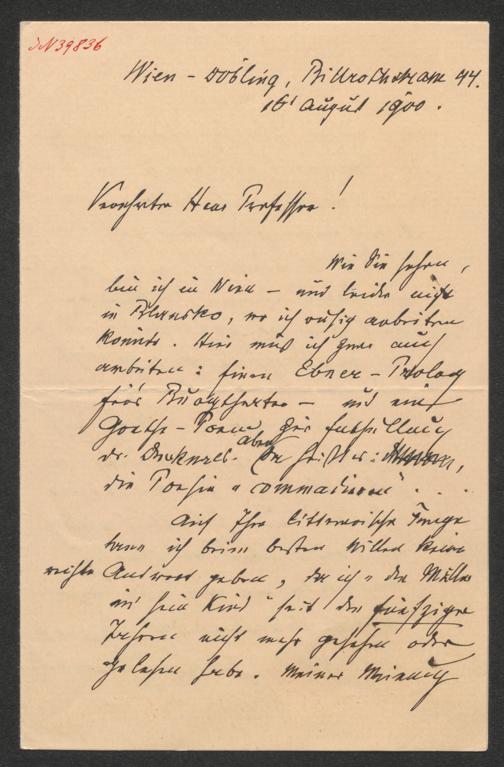 JN 39836
Wien – Döbling, Billrothstrasse 44.
16t August 1900.
Verehrter Herr Professor!
Wie Sie sehen,
bin ich in Wien – und leider nicht
in Blansko, wo ich ruhig arbeiten
könnte. Hier muß ich zwar auch
arbeiten: einen Ebner-Prolog
für's Burgtheater – und ein
Goethe-Poem, zur Enthüllung
des Denkmals. aber
die Poesie „commandieren" . . .
Auf Ihre litterarische Frage
kann ich beim besten Willen keine
rechte Antwort geben, da ich „der Müller
und sein Kind" seit den fünfziger
Jahren nicht mehr gesehen oder
gelesen habe. Meiner Meinung